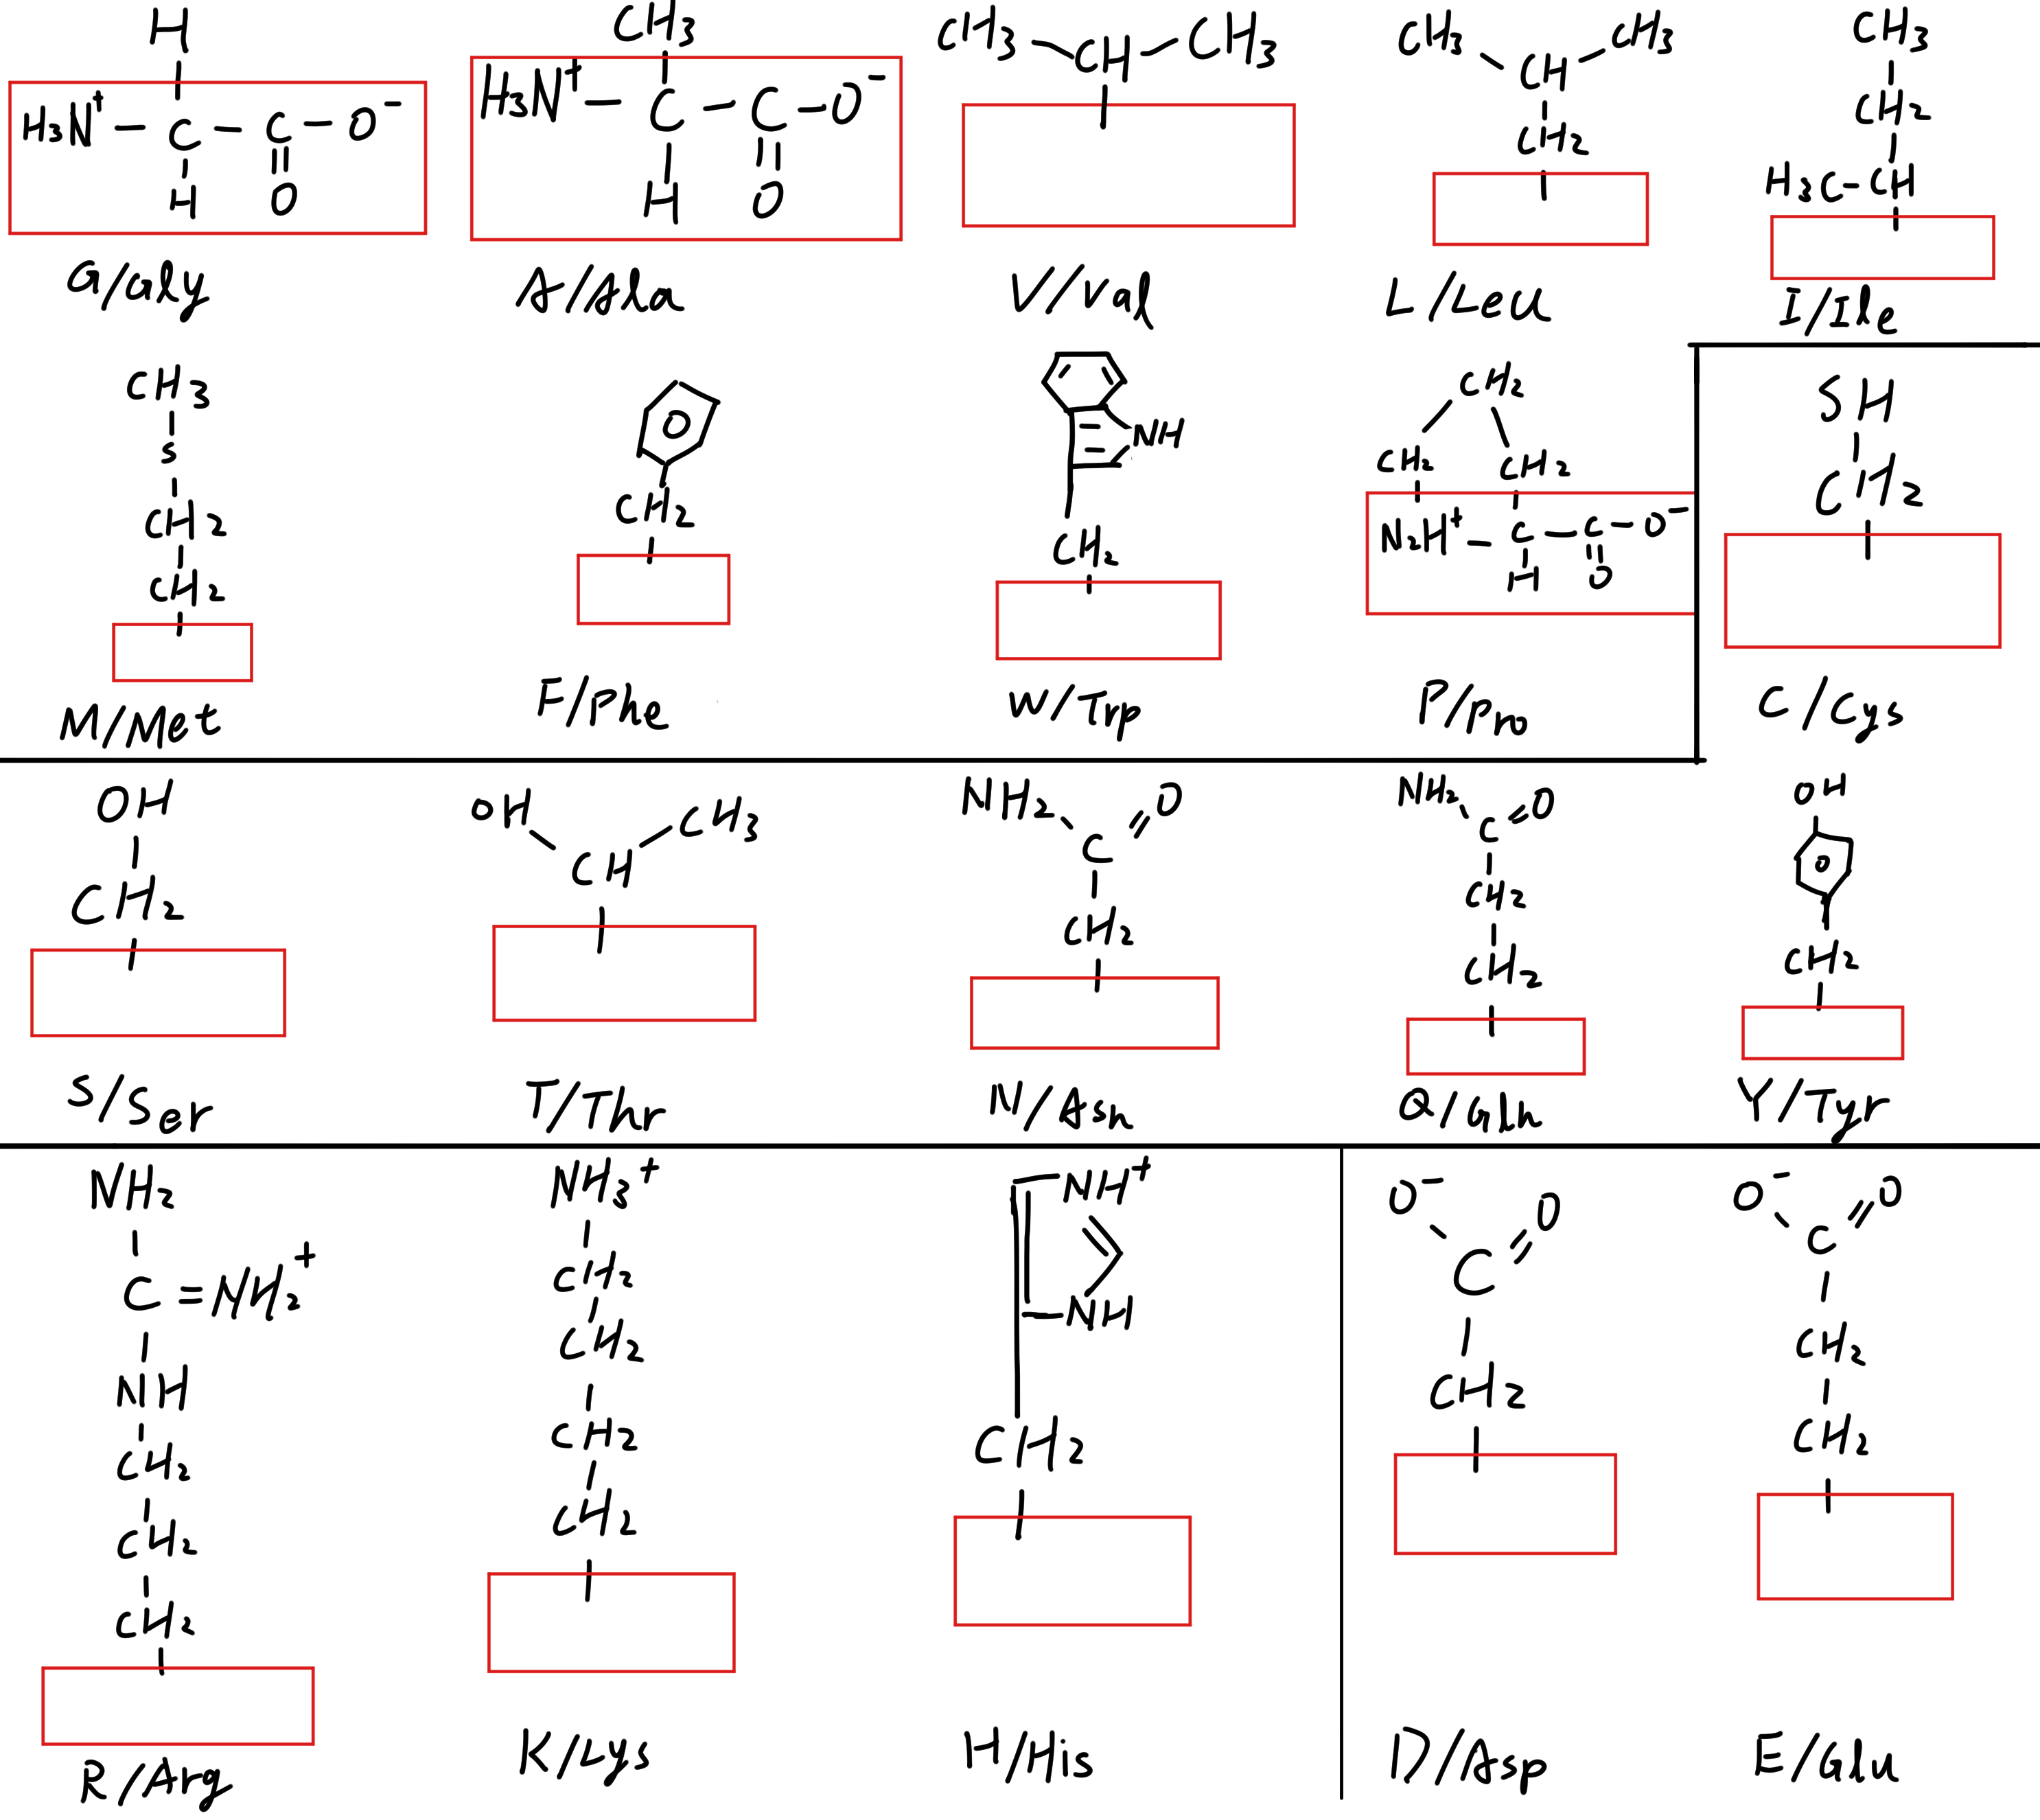 H
H₃N⁺ — C — C — O⁻
H O
G/Gly
CH₃
H₃N⁺ — C — C — O⁻
H O
A/Ala
CH₃ CH CH₃
V/Val
CH₃ CH CH₃
CH₂
L/Leu
CH₃
CH₂
H₃C - CH
I/Ile
CH₃
S
CH₂
CH₂
M/Met
CH₂
F/Phe
NH
CH₂
W/Trp
CH₂
CH₂ CH₂
N₂H⁺ — C — C — O⁻
H O
P/Pro
SH
CH₂
C/Cys
OH
CH₂
S/Ser
OH CH₃
CH
T/Thr
NH₂ O
C
CH₂
N/Asn
NH₂ O
C
CH₂
CH₂
Q/Gln
OH
CH₂
Y/Tyr
NH₂
C = NH₂⁺
NH
CH₂
CH₂
CH₂
R/Arg
NH₃⁺
CH₂
CH₂
CH₂
CH₂
K/Lys
NH⁺
NH
CH₂
H/His
O⁻ O
C
CH₂
D/Asp
O⁻ O
C
CH₂
CH₂
E/Glu